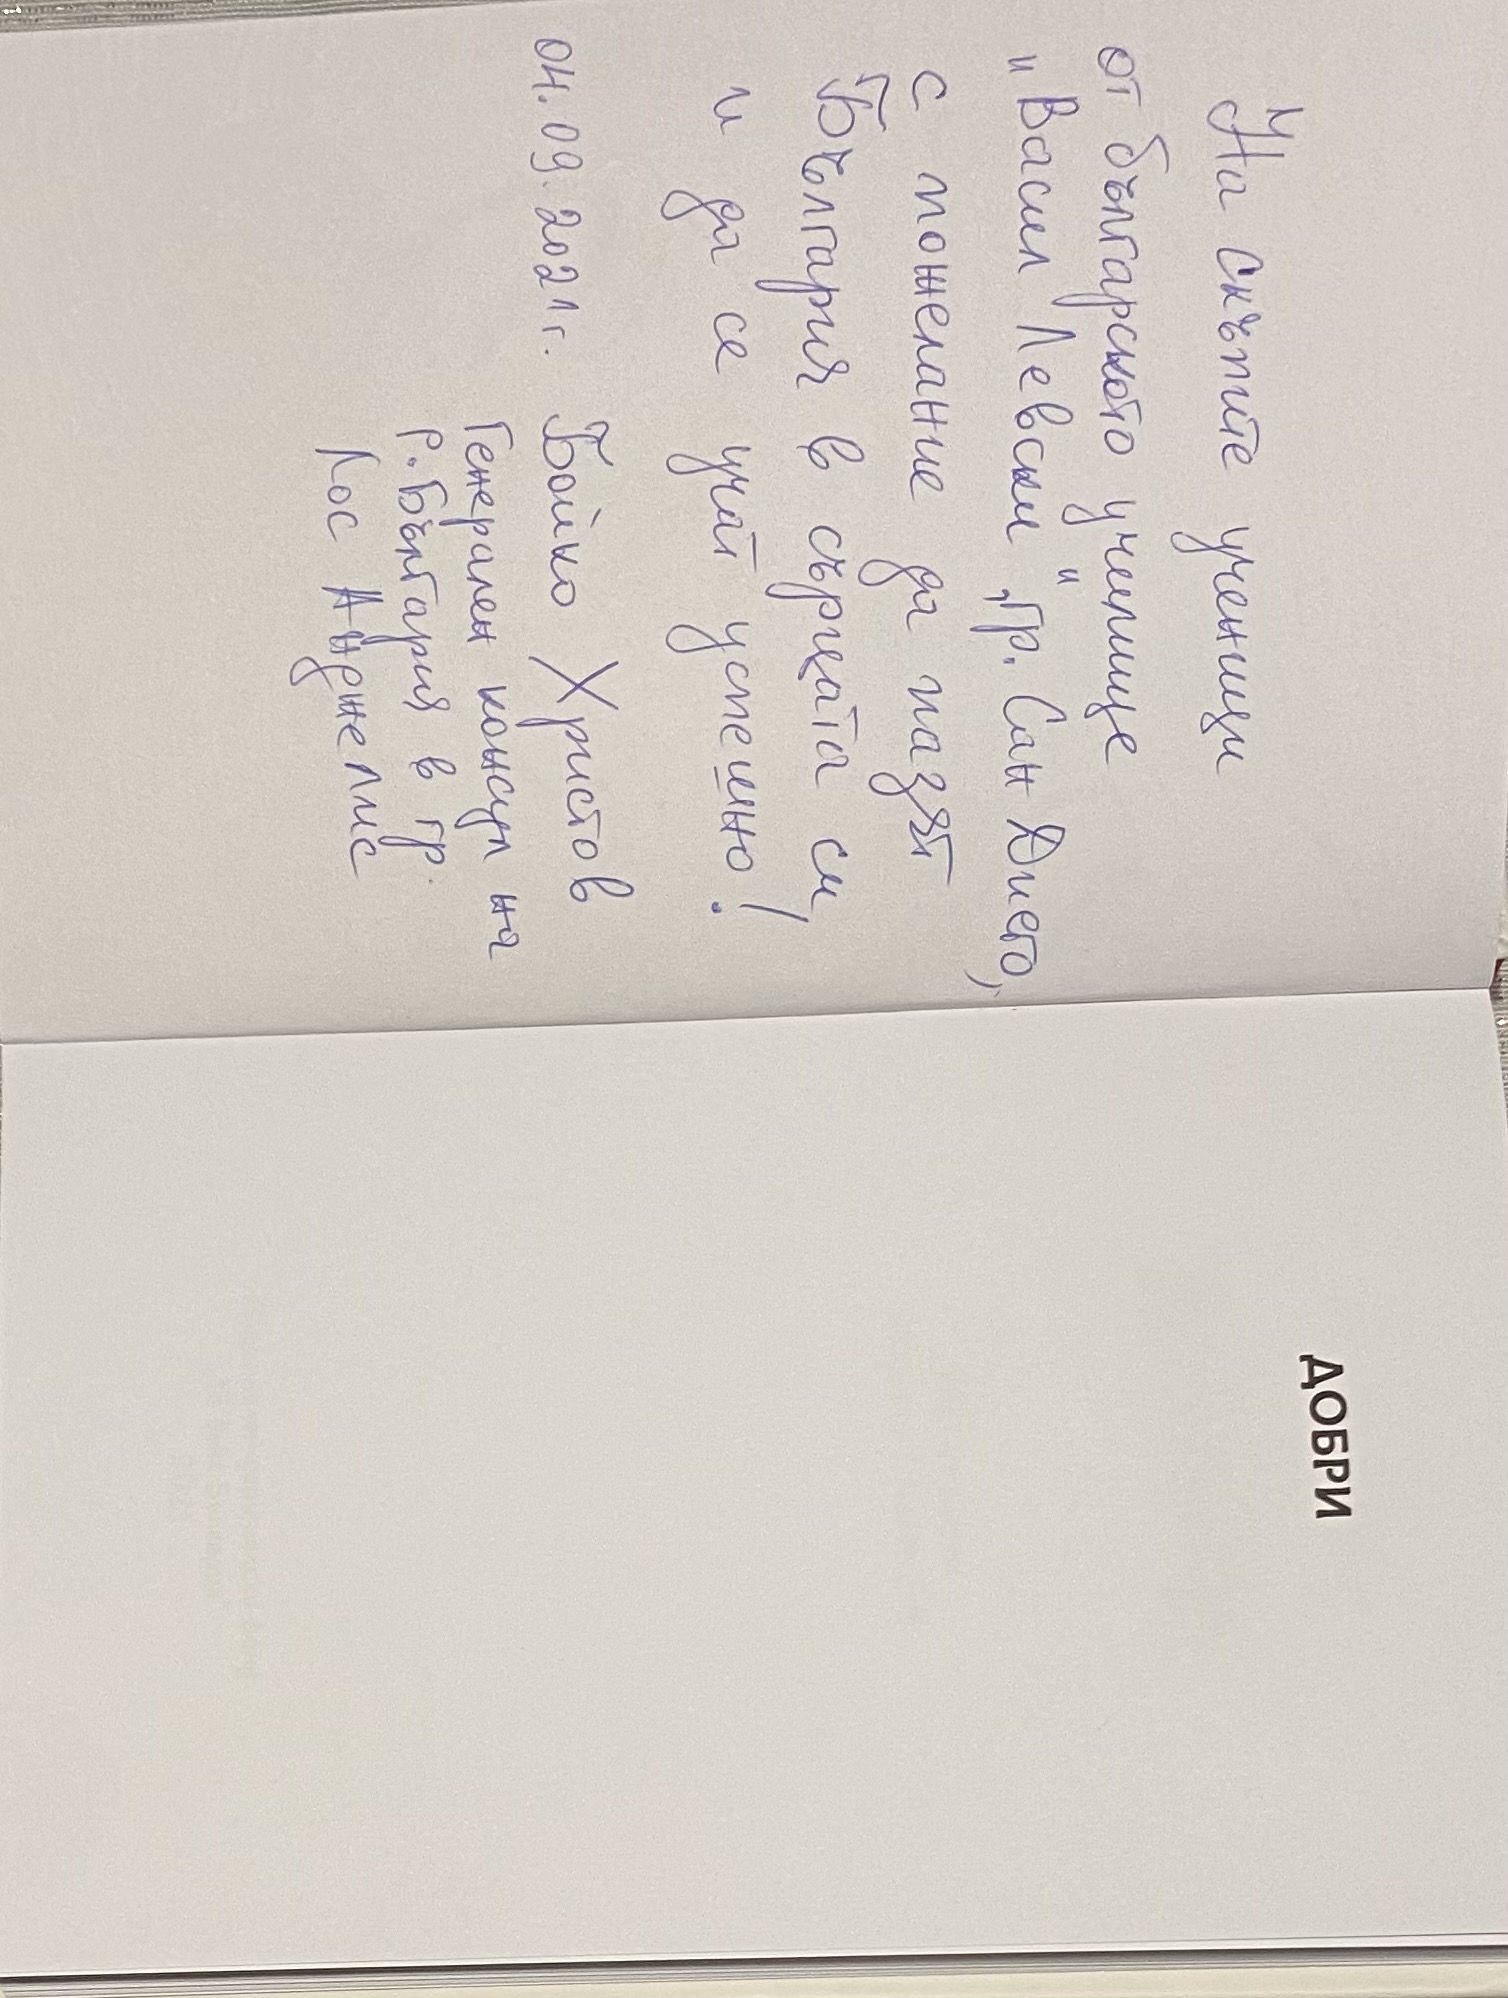 На скъпите ученици
от българското училище
"Васил Левски", гр. Сан Диего,
с пожелание да пазят
България в сърцата си
и да се учат успешно!
04.09.2021г. Бойко Христов
Генерален консул на
Р. България в гр.
Лос Анджелис
ДОБРИ